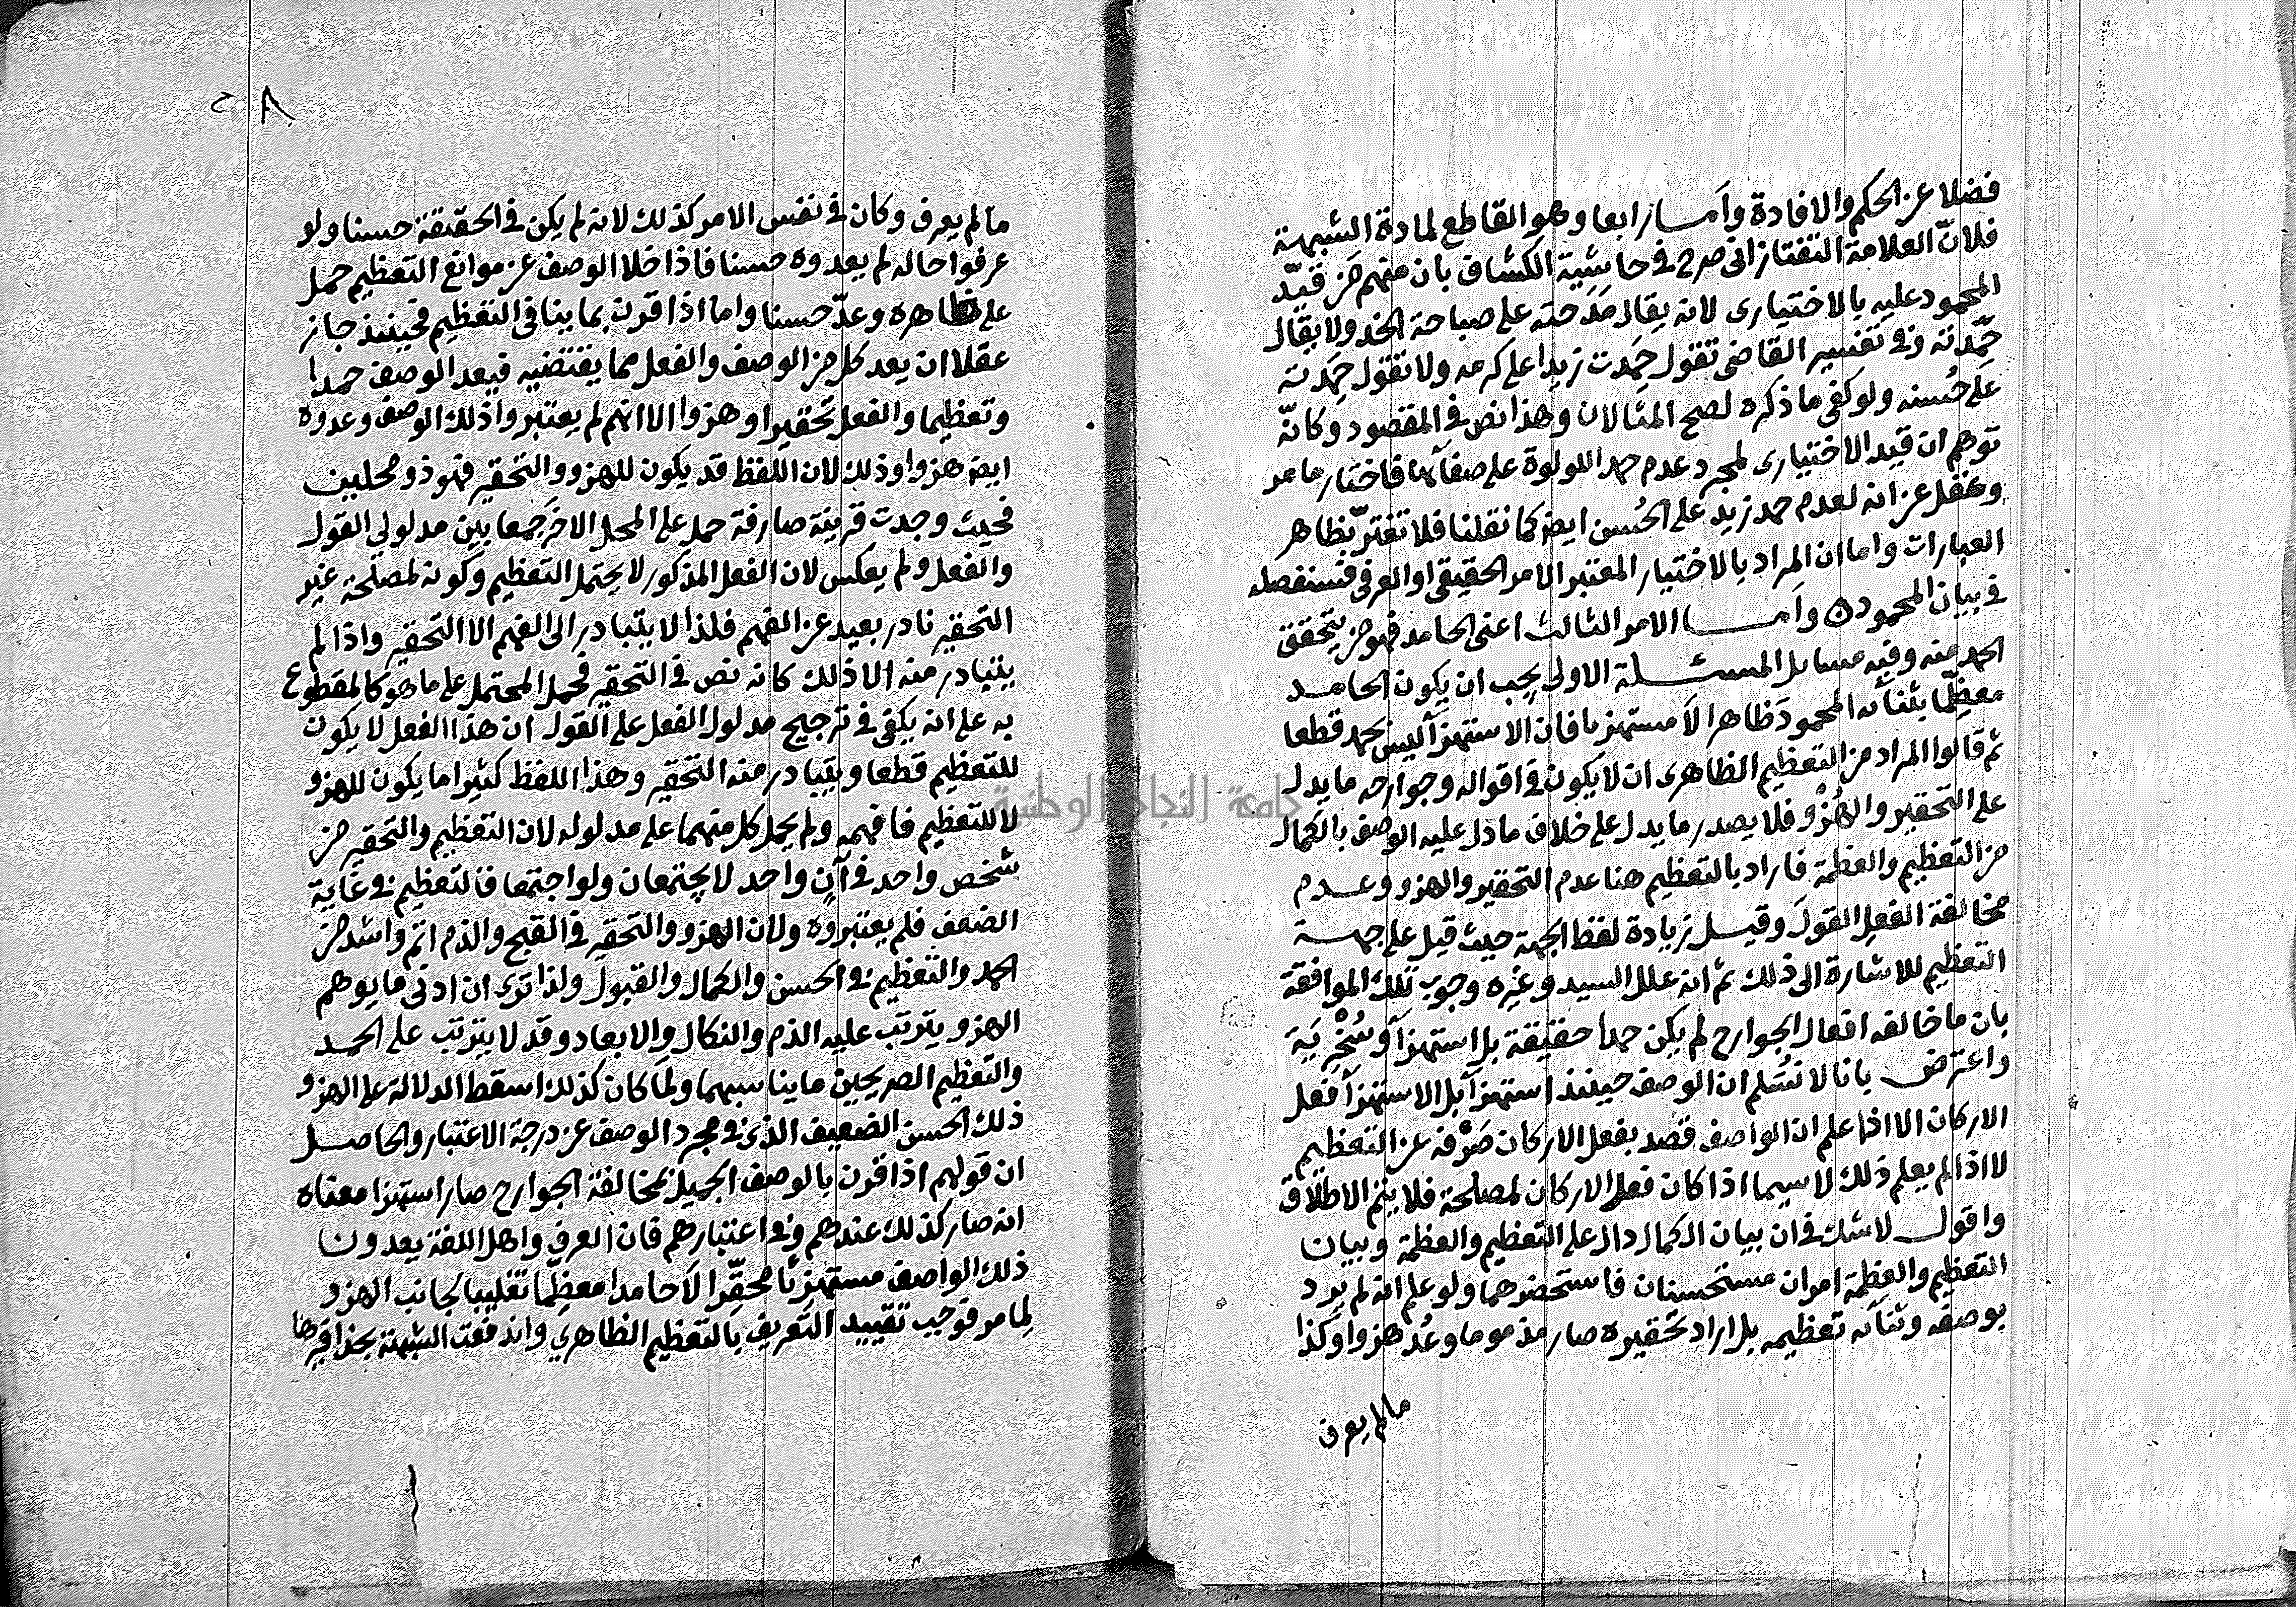 فضلا عن الحكم والافادة واما رابعا وهو القاطع لمادة الشبهة
فلانّ العلامة التفتازانى صرح فى حاشية الكشاف بان منهم من قيّد
المحمود عليه بالاختيارى لانه يقال مدحته على صباحة الخد ولا يقال
حمدته وفى تفسير القاضى تقول حمدت زيدا على كرمه ولا تقول حمدته
على حُسنه ولو كفى ما ذكره لصح المثالان وهذا نص فى المقصود وكانّه
توهم ان قيد الاختيارى لمجرد عدم حمد اللولوة على صفائها فاختار ما مر
وغفل عن انه لعدم حمد زيد على الحُسن ايضا كما نقلنا فلا تغترّ بظاهر
العبارات واما ان المراد بالاختيار المعتبر الامر الحقيقى او العرفى فسنفصله
فى بيان المحمود ه واما الامر الثالث اعنى الحامد فهو من يتحقق
الحمد منه وفيه مسائل المسئلة الاولى يجب ان يكون الحامد
معظِّما بثنائه المحمودَ ظاهرا لا مستهزيا فان الاستهزأ ليس بحمد قطعا
ثم قالوا المراد من التعظيم الظاهرى ان لا يكون فى اقواله وجوارحه ما يدل
على التحقير والهُزْو فلا يصدر ما يدل على خلاف ما دل عليه الوصف بالكمال
من التعظيم والعظمة فاراد بالتعظيم هنا عدم التحقير والهزو وعدم
مخالفة الفعلِ القولَ وقيل زيادة لفظ الجهة حيث قيل على جهة
التعظيم للاشارة الى ذلك ثم انه علل السيد وغيره وجوب تلك الموافقة
بان ما خالفه افعال الجوارح لم يكن حمدا حقيقة بل استهزأ وسُخْرِيَة
واعترض بانا لا نُسَلم ان الوصف حينئذ استهزأ بل الاستهزأ فعل
الاركان الا اذا علم ان الواصف قصد بفعل الاركان صَرْفه عن التعظيم
لا اذا لم يعلم ذلك لا سيما اذا كان فعل الاركان لمصلحة فلا يتم الاطلاق
واقول لا شك فى ان بيان الكمال دال على التعظيم والعظمة وبيان
التعظيم والعظمة امران مستحسنان فاستحضرهما ولو علم انه لم يرد
بوصفه وثنائه تعظيمه بل اراد تحقيره صار مذموما وعُد هزوا وكذا
ما لم يعرف
٥٨
ما لم يعرف وكان فى نفس الامر كذلك لانه لم يكن فى الحقيقة حسنا ولو
عرفوا حاله لم يعدوه حسنا فاذا خلا الوصف عن موانع التعظيم حمل
على ظاهره وعدّ حسنا واما اذا قرن بما ينافى التعظيم فحينئذ جاز
عقلا ان يعد كل من الوصف والفعل مما يقتضيه فيعد الوصف حمدا
وتعظيما والفعل تحقيرا وهزوا الا انهم لم يعتبروا ذلك الوصف وعدوه
ايضا هزوا وذلك لان اللفظ قد يكون للهزو والتحقير فهو ذو محلين
فحيث وجدت قرينة صارفة حمل على المحل الاخر جمعا بين مدلولي القول
والفعل ولم يعكس لان الفعل المذكور لا يحتمل التعظيم وكونه لمصلحة غير
التحقير نادر بعيد عن الفهم فلذا لا يتبادر الى الفهم الا التحقير واذا لم
يتبادر منه الا ذلك كانه نص فى التحقير فحمل المحتمل على ما هو كالمقطوع
به على انه يكفى فى ترجيح مدلول الفعل على القول ان هذا الفعل لا يكون
للتعظيم قطعا ويتبادر منه التحقير وهذا اللفظ كثيرا ما يكون للهزو
لا للتعظيم فافهمه ولم يحمل كل منهما على مدلوله لان التعظيم والتحقير من
شخص واحد فى آنٍ واحد لا يجتمعان ولو اجتمعا فالتعظيم فى غاية
الضعف فلم يعتبروه ولان الهزو والتحقير فى القبح والذم اتم واشد من
الحمد والتعظيم فى الحسن والكمال والقبول ولذا ترى ان ادنى ما يوهم
الهزو يترتب عليه الذم والنكال والابعاد وقد لا يترتب على الحمد
والتعظيم الصريحين ما يناسبهما ولمّا كان كذلك اسقط الدلالة على الهزو
ذلك الحسن الضعيف الذى فى مجرد الوصف عن درجة الاعتبار والحاصل
ان قولهم اذا قرن بالوصف الجميل مخالفة الجوارح صار استهزا معناه
انه صار كذلك عندهم وفى اعتبارهم فان العرف واهل اللغة يعدون
ذلك الواصف مستهزئا محقِّرا لا حامدا معظِّما تغليبا لجانب الهزو
لِما مر فوجب تقييد التعريف بالتعظيم الظاهري واندفعت الشبهة بحذافيرها
جامعة النجاح الوطنية